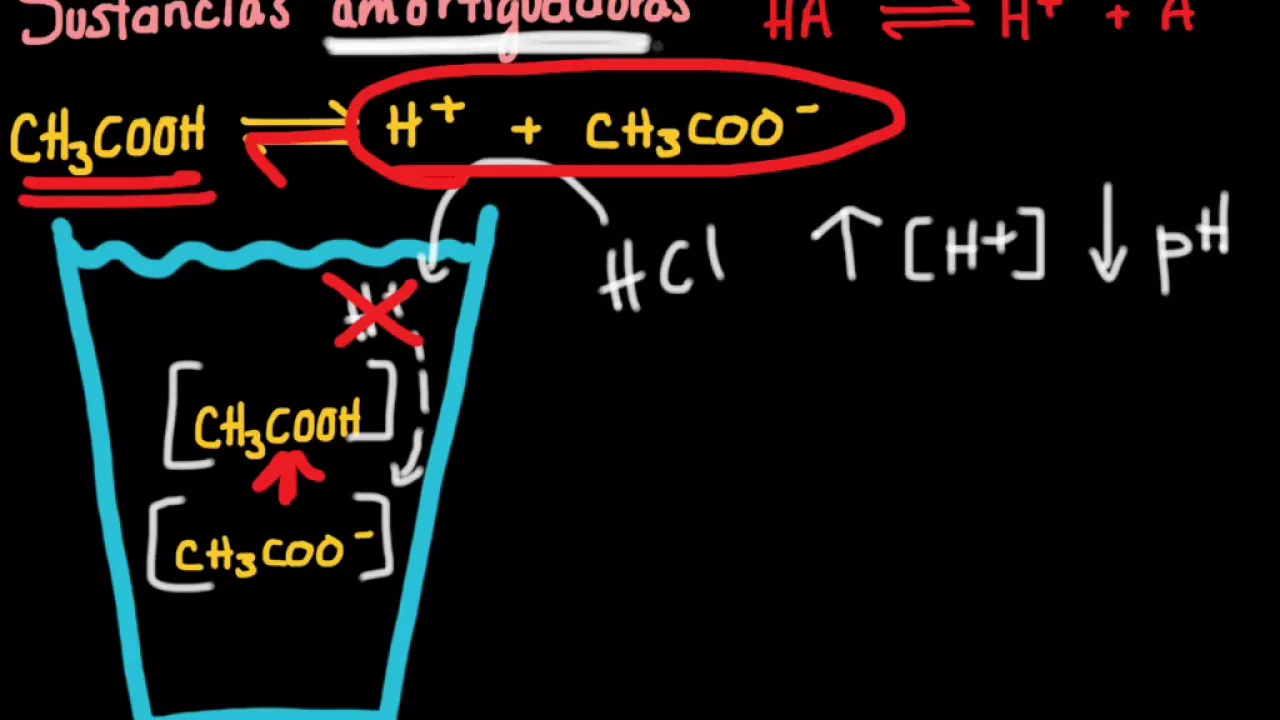 Sustancias amortiguadoras HA ⇌ H⁺ + A
CH₃COOH ⇌ H⁺ + CH₃COO⁻
HCl ↑ [H⁺] ↓ pH
H⁺
[CH₃COOH]
[CH₃COO⁻]